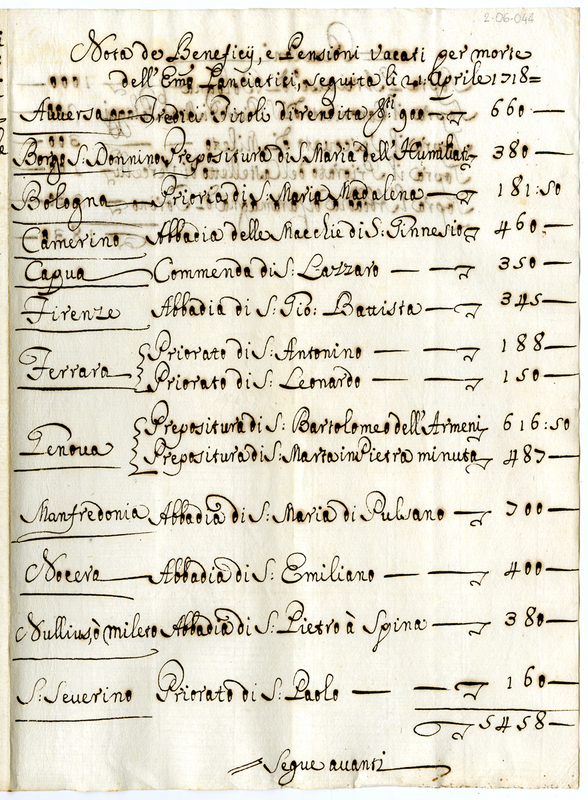 2-06-044
Nota de Beneficij, e Pensioni vacati per morte
dell'Emo Panciatici, seguita li 21: Aprile 1718=
Auversa Tredici Titoli di rendita 900 660
Borgo S: Donnino Prepositura di S: Maria dell'Humiliati 380
Bologna Prioria di S: Maria Madalena 181:50
Camerino Abbadia delle Macchie di S: Ginnesio 460
Capua Commenda di S: Lazzaro 350
Firenze Abbadia di S: Gio: Battista 345
Priorato di S: Antonino 188
Ferrara
Priorato di S: Leonardo 150
Prepositura di S: Bartolomeo dell'Armeni 616:50
Genova
Prepositura di S: Marta in Pietra minuta 487
Manfredonia Abbadia di S: Maria di Pulsano 700
Nocera Abbadia di S: Emiliano 400
Nullius, ò mileto Abbadia di S: Pietro à Spina 380
S: Severino Priorato di S: Paolo 160
5458
Segue avanti